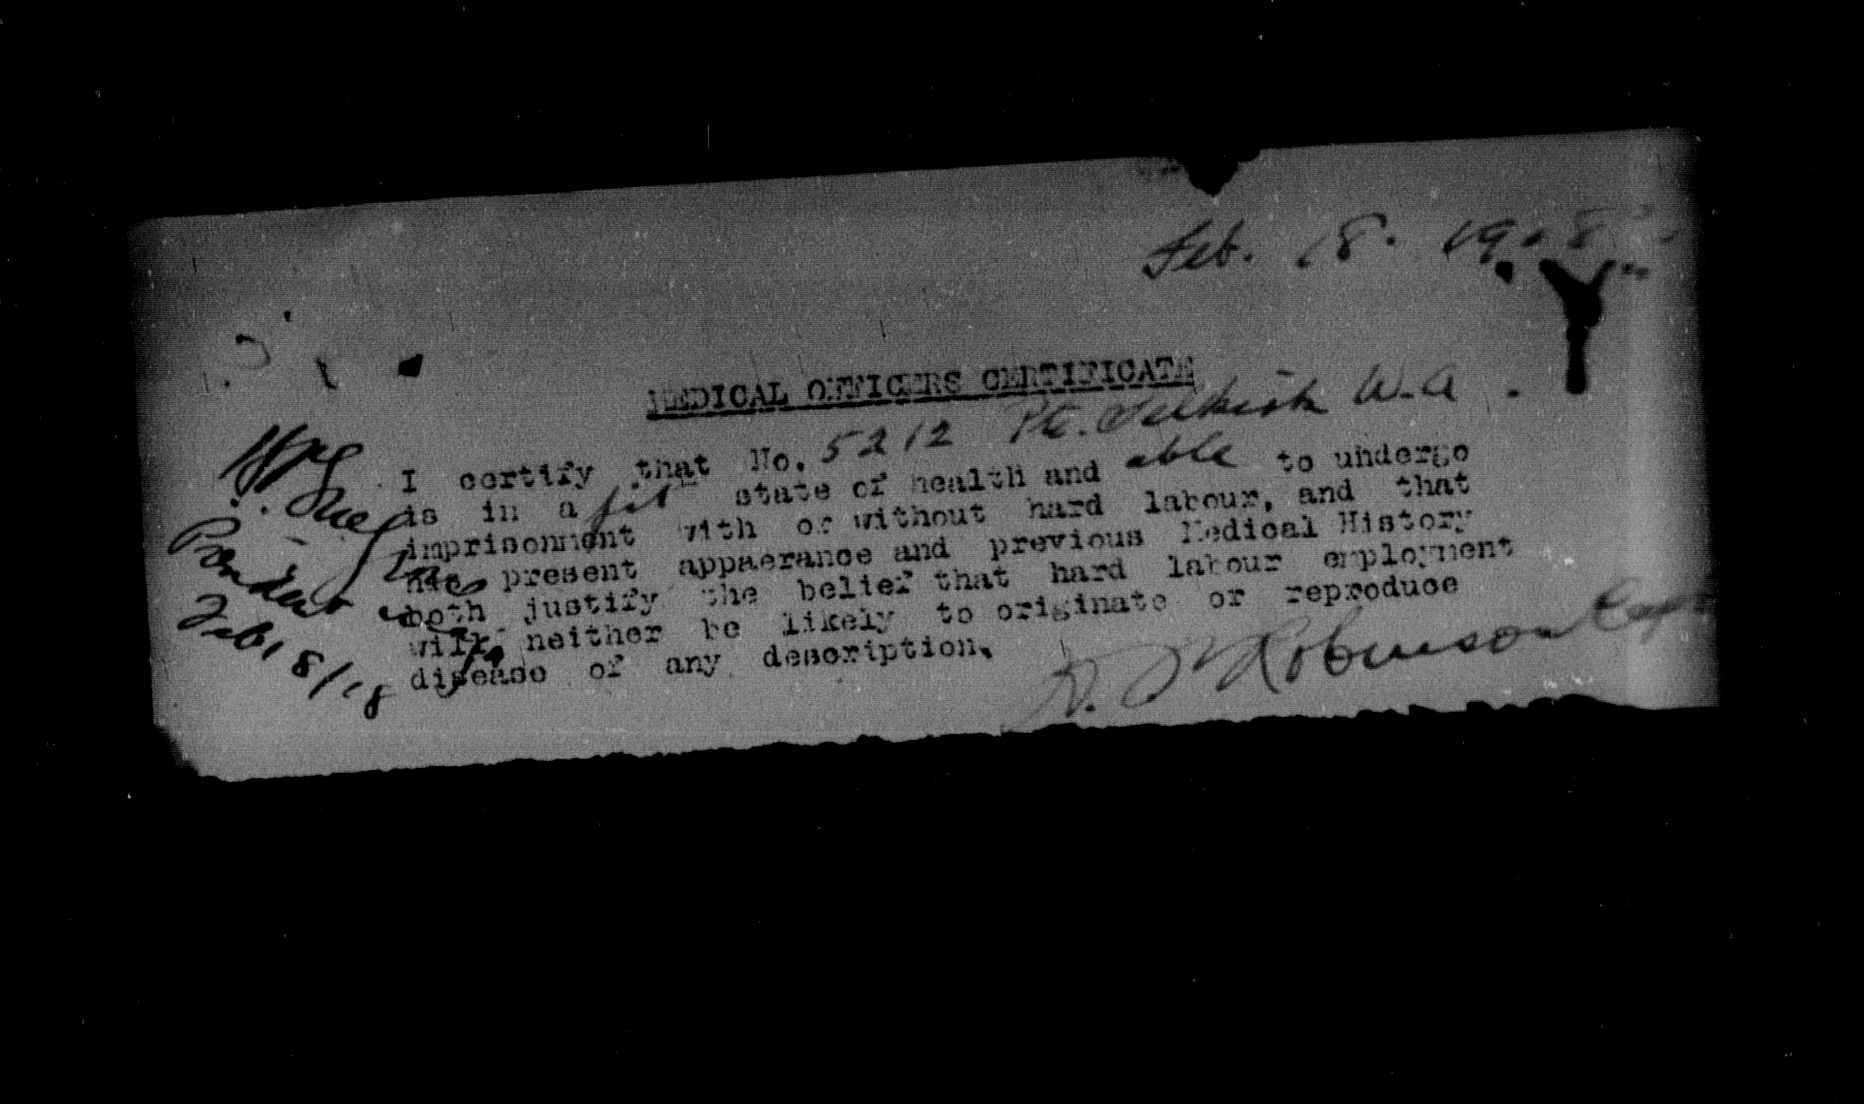 Feb. 18. 1918
MEDICAL OFFICERS CERTIFICATE
I certify that No. 5212 Pte. Selkirk W.A.
is in a fit state of health and able to undergo
imprisonment with or without hard labour, and that
his present appaerance and previous Medical History
both justify the belief that hard labour employment
will neither be likely to originate or reproduce
disease of any description.
Robinson Capt
Feb 18/18